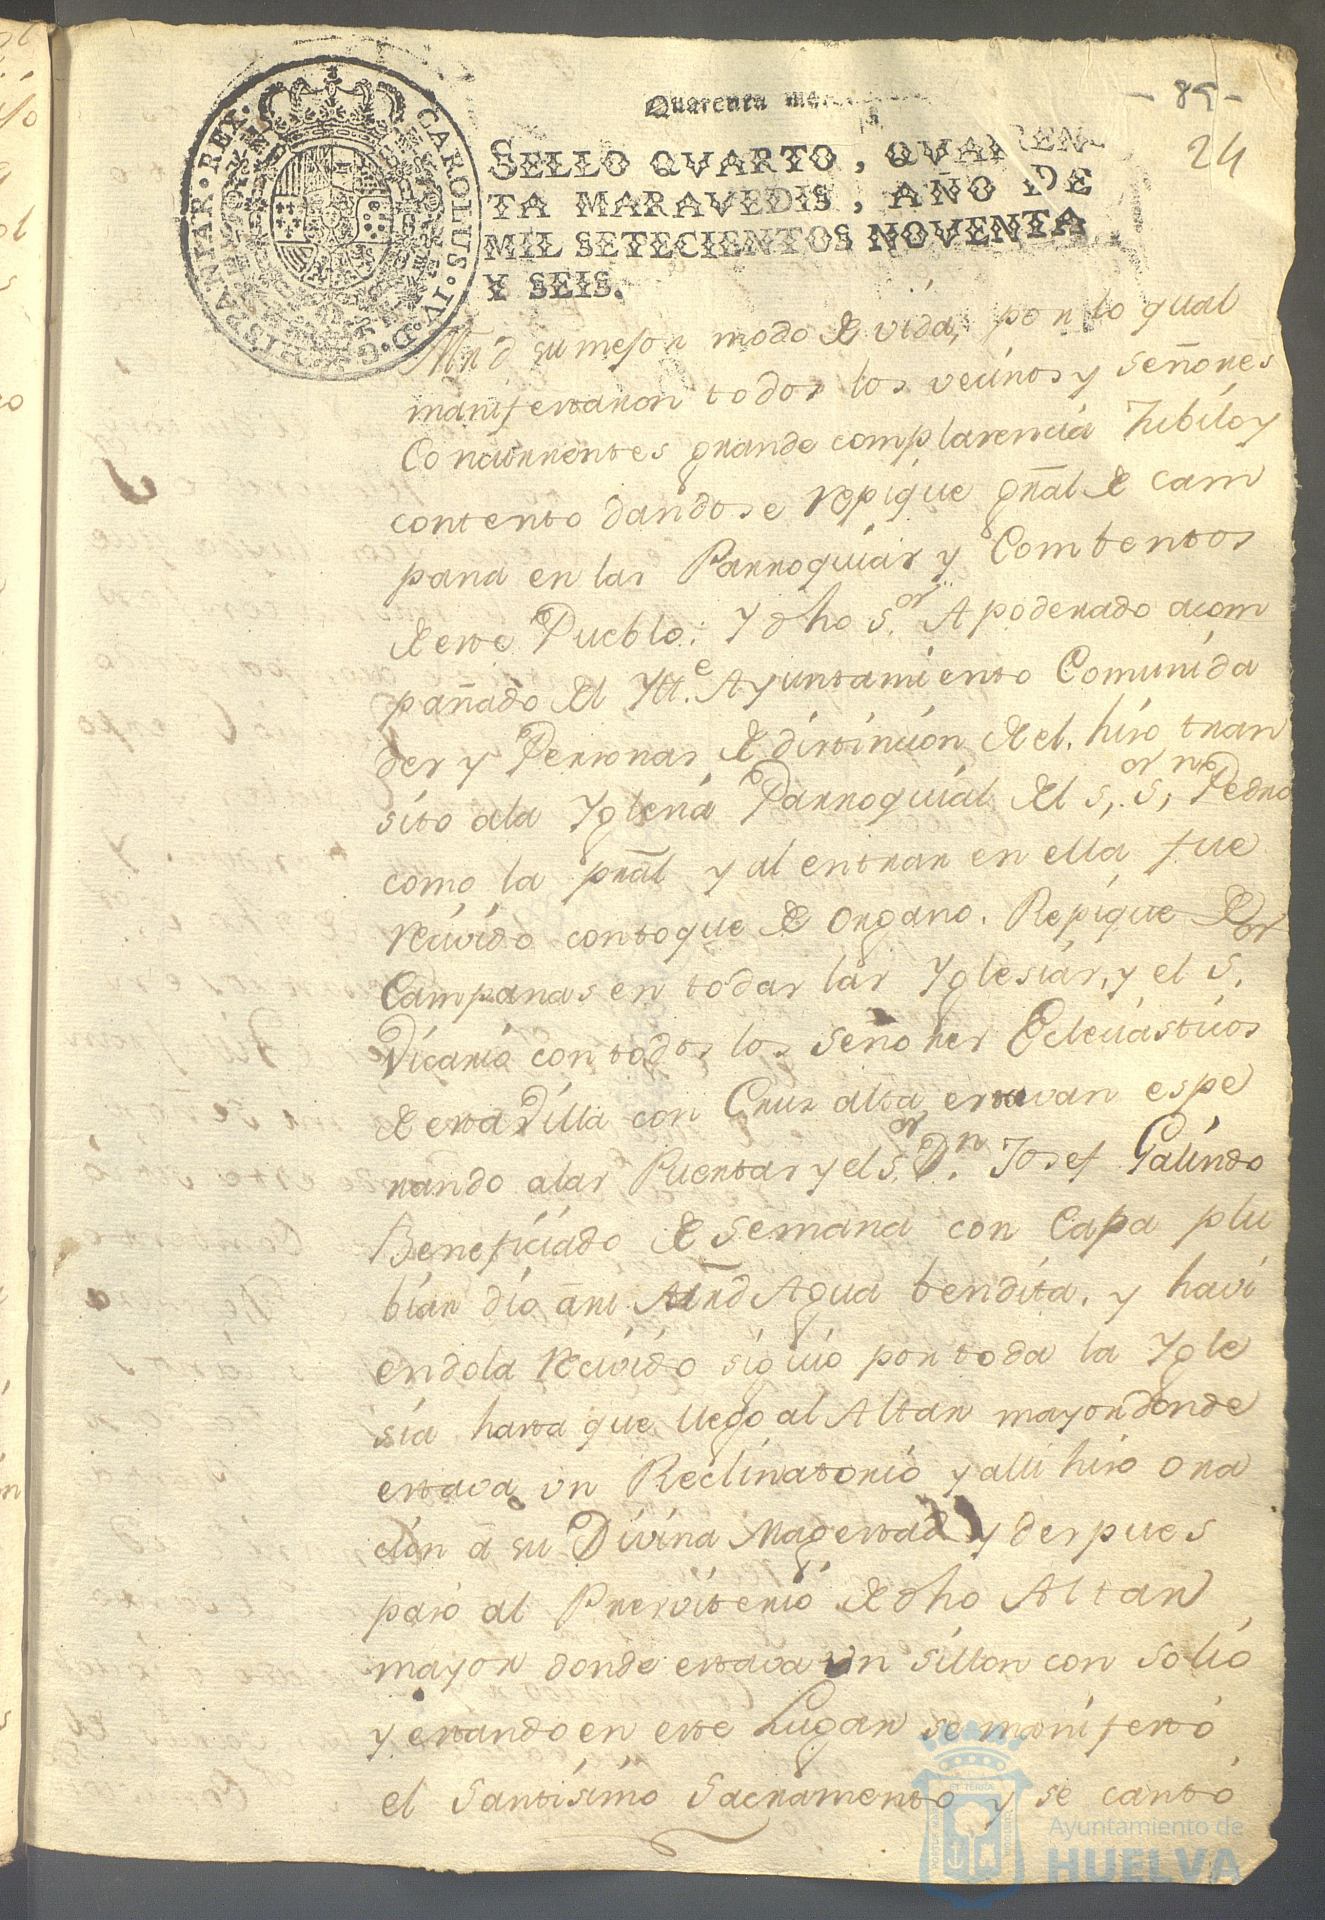 Quarenta mar
- 85 -
24
SELLO QVARTO, QVAREN-
TA MARAVEDIS, AÑO DE
MIL SETECIENTOS NOVENTA
Y SEIS.
CAROLUS · IV · D · G · HISPANIAR · REX ·
su mejor modo de vida, por lo qual
manifestaron todos los vecinos y señores
Concurrentes grande complacencia Jubilo y
contento dandose repique gr̃al de cam
pana en las Parroquias y Combentos
de este Pueblo: Y dho S.or Apoderado acom
pañado del Ytt.e Ayuntamiento Comunida
des y Personas de distincion de el. hizo tran
sito a la Yglesia Parroquial del S.or S.n Pedro
como la pr̃al y al entrar en ella fue
recivido con toque de organo. Repique de
Campanas en todas las Yglesias, y el S.or
Vicario con todos los señores Eclesiasticos
de esta Villa con Cruz alta estavan espe
rando a las Puertas y el S.or D.n Josef Galindo
Beneficiado de semana con Capa plu
bial dio Agua bendita, y havi
endola recivido siguio por toda la Ygle
sia hasta que llego al Altar mayor donde
estava un Reclinatorio y alli hizo ora
cion a su Divina Magestad y despues
paso al Presviterio de dho Altar
mayor donde estava un sillon con solio
y estando en este Lugar se manifestó
el Santisimo Sacramento y se cantó
Ayuntamiento de
HUELVA